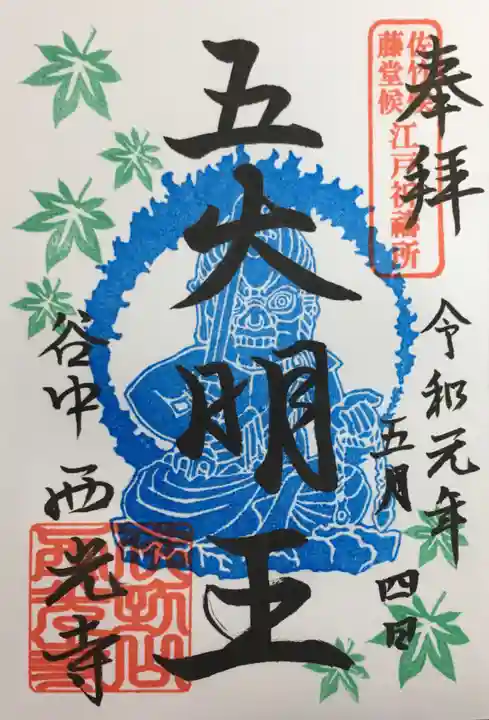 奉拝
佐竹候
藤堂候
江戸祈祷所
令和元年
五月
四日
五大明王
谷中 西光寺